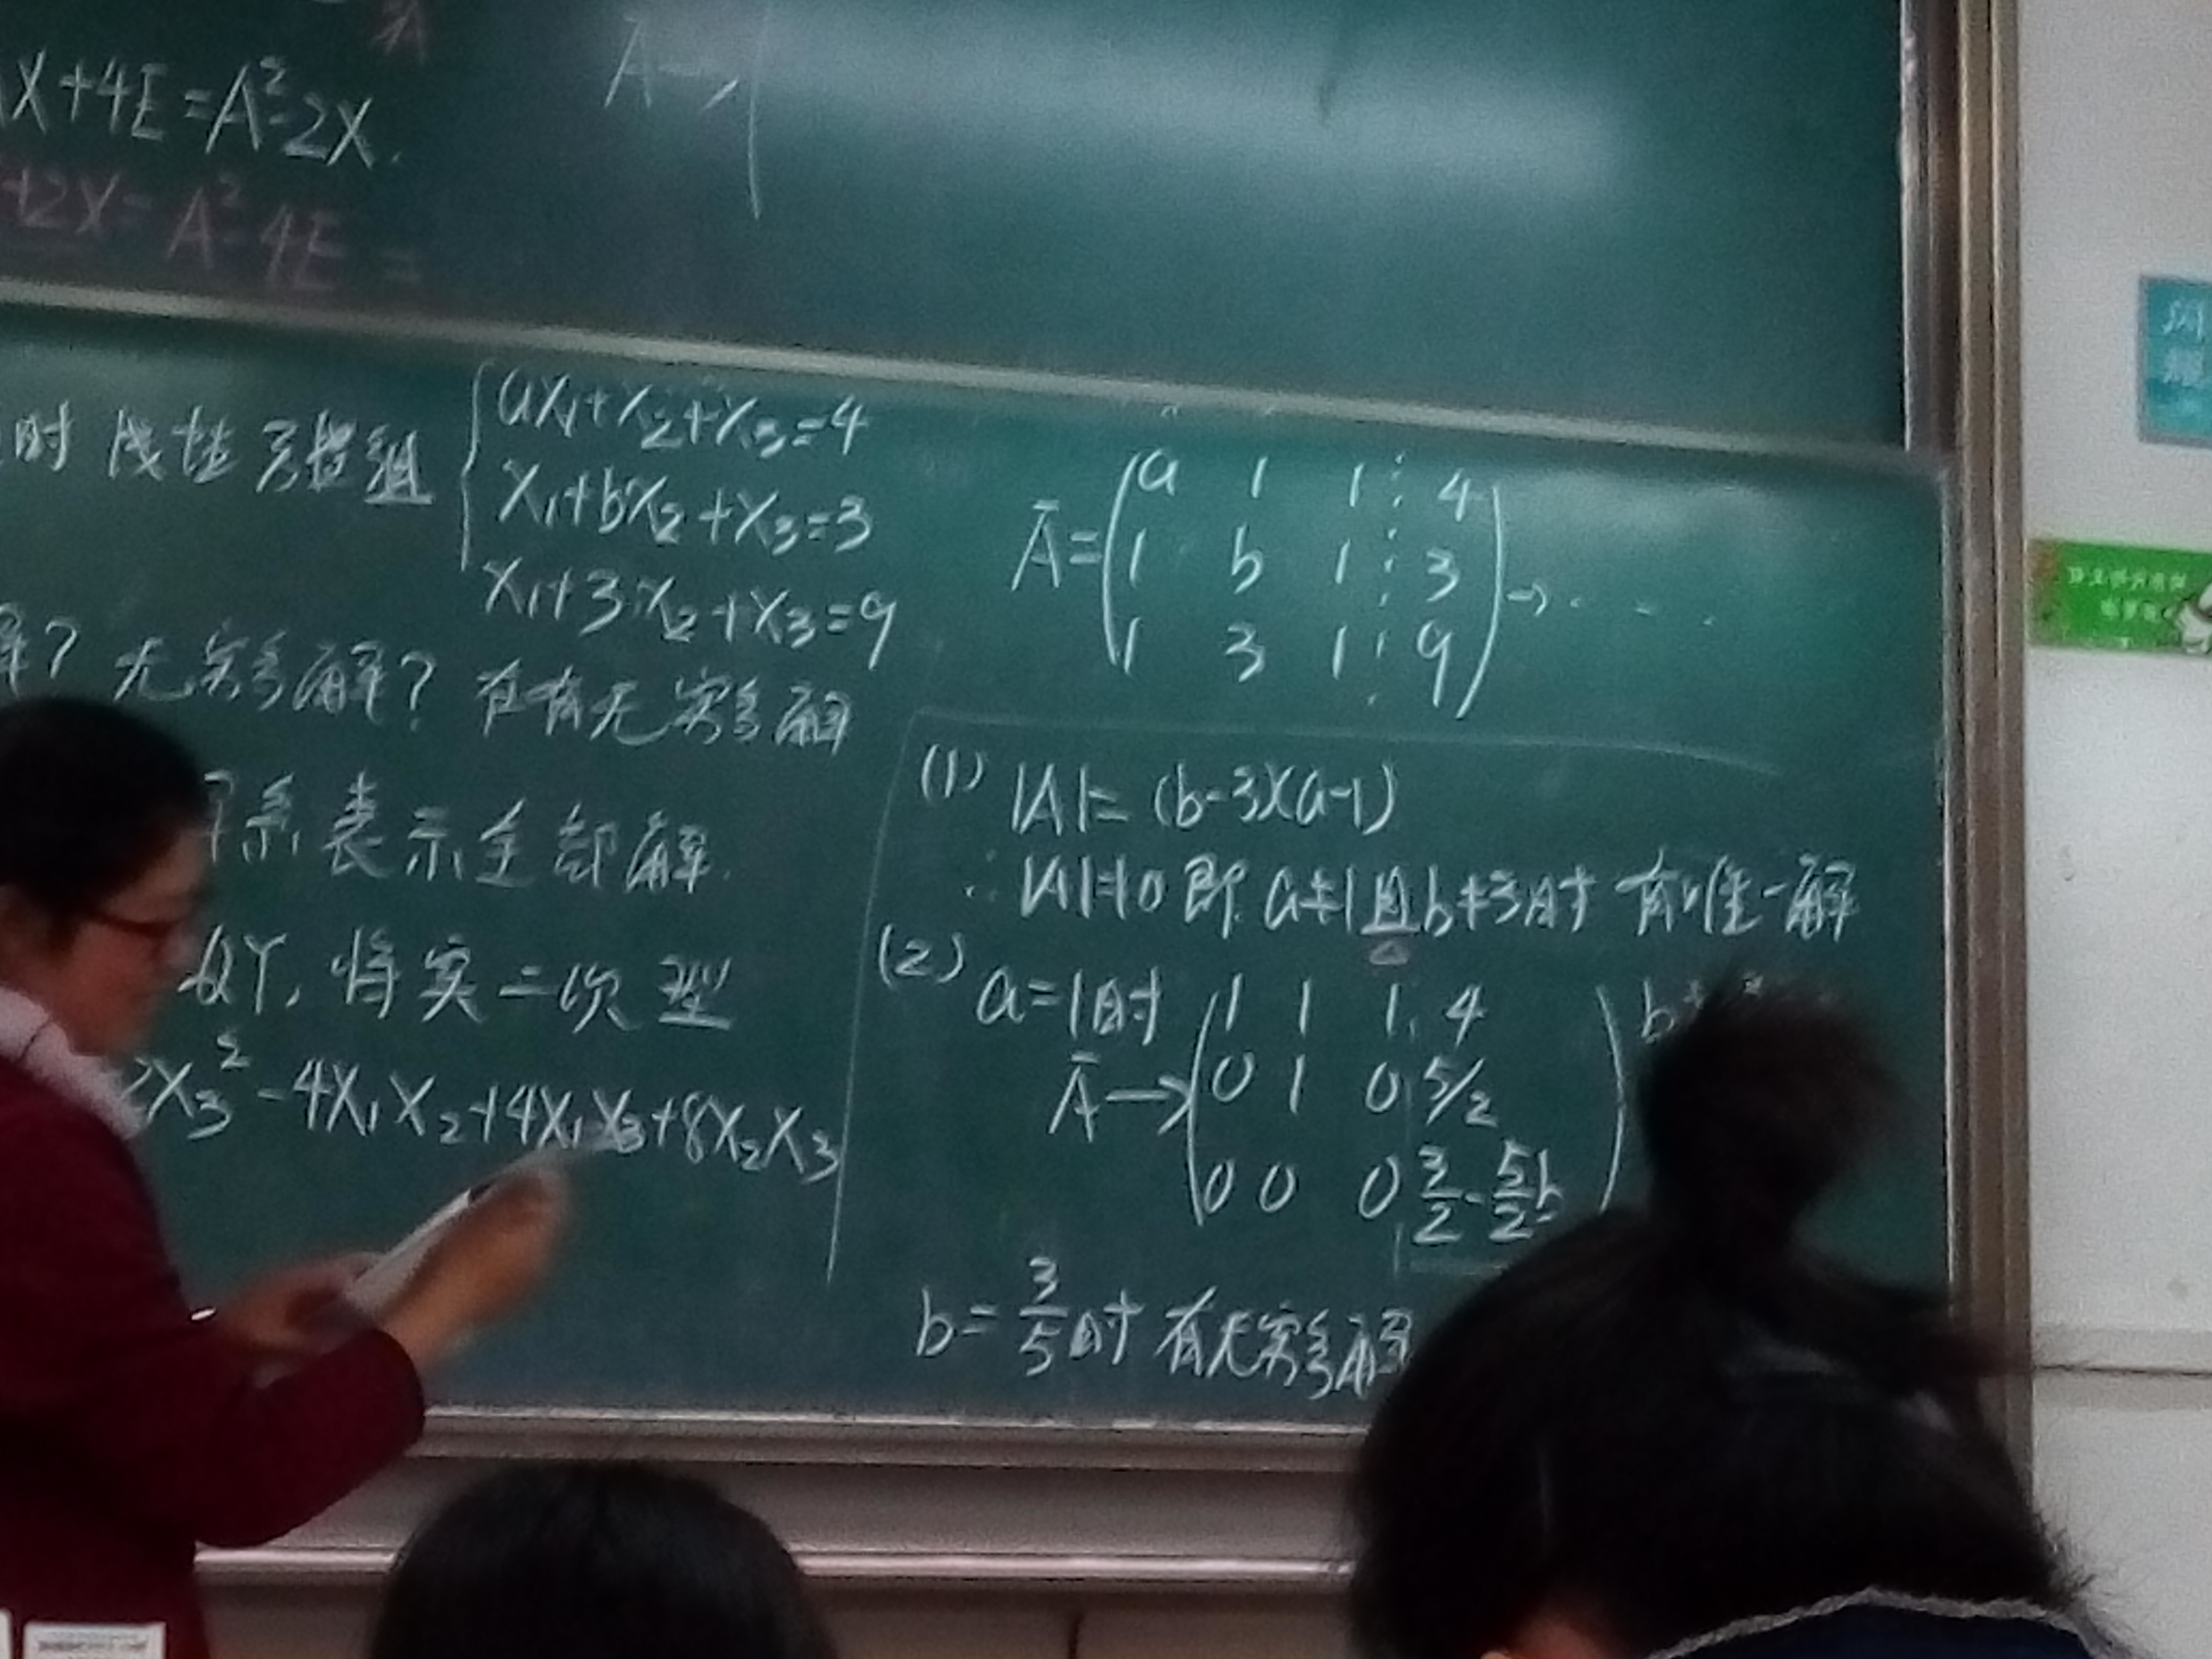 X+4E=A²-2X.
+2X=A²-4E=
A→
时 线性方程组
ax₁+x₂+x₃=4
x₁+bx₂+x₃=3
x₁+3x₂+x₃=9
解? 无穷多解? 在有无穷多解
解系表示全部解.
QY, 将实二次型
2x₃²-4x₁x₂+4x₁x₃+8x₂x₃
Ā=
a 1 1 4
1 b 1 3
1 3 1 9
→...
(1) |A|=(b-3)(a-1)
∴|A|≠0 即 a≠1且b≠3时 有唯一解
(2) a=1时
Ā→
1 1 1 4
0 1 0 5/2
0 0 0 3/2-5/2b
b=3/5时 有无穷多解